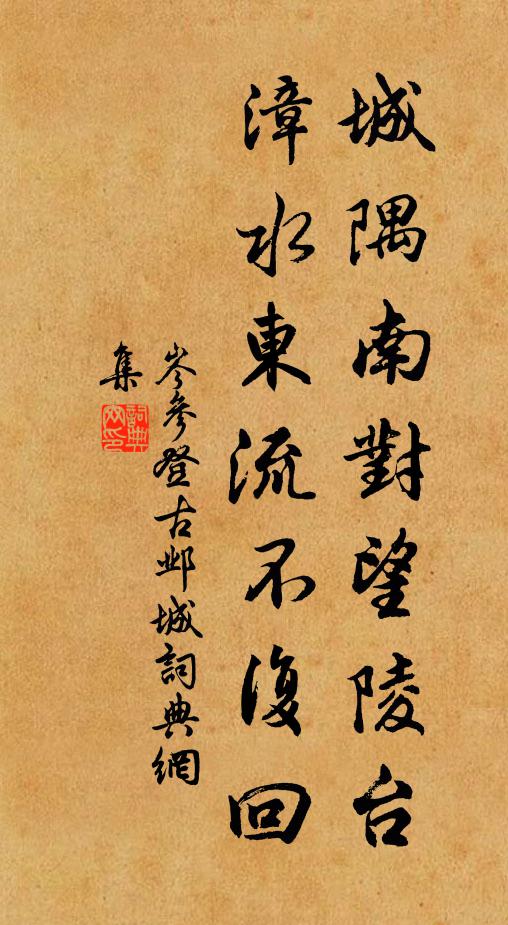 城隅南對望陵台
漳水東流不復回
岑參登古邺城詞典網
集
詞典網印